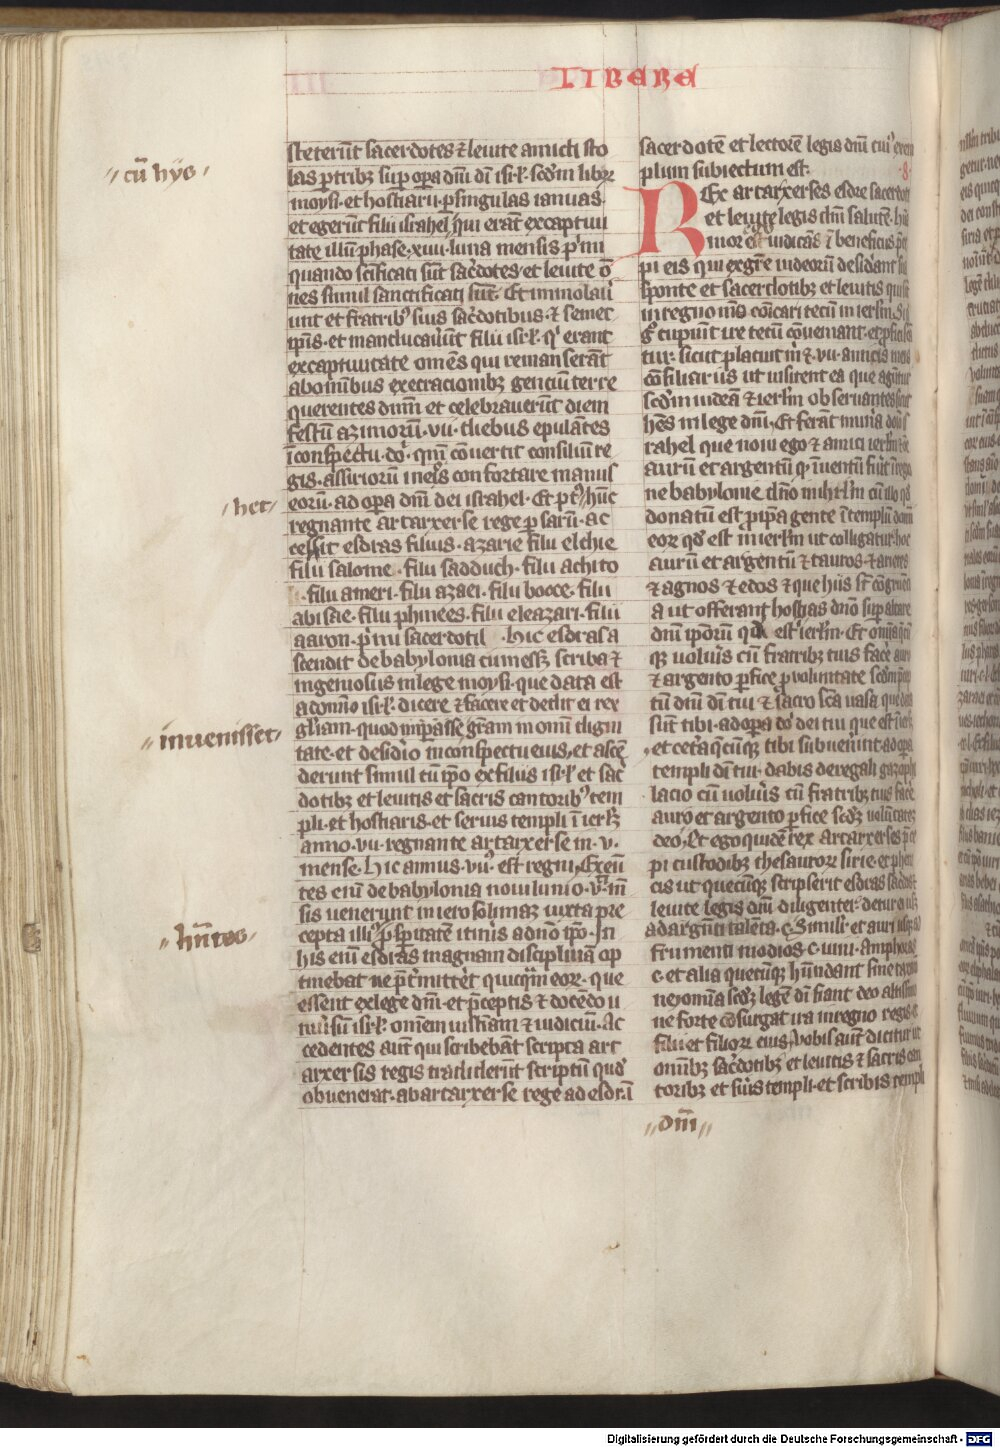 LIBERE
steterūt sacerdotes ⁊ leuite amicti sto
las ꝑ tribꝫ sup opa dn̄i dī isrl̄ scd̄m libꝝ
moysi et hostiarii ꝑ singulas ianuas
et egerūt filii israhel qui erāt ex captiui
tate illū phase xiiii luna mensis p'mi
quando scīficati sūt sac̄dotes et leuite ō
nes simul sanctificati sūt Et immolaū
unt et fratribꝰ suis sac̄dotibus ⁊ semet
ip̄is et manducauer̄ūt filii isrl̄ q' erant
ex captiuitate om̄es qui remanserāt
abominibus execracionibꝫ genciū terre
querentes dnm̄ et celebrauerūt diem
festū azimorū vii diebus epulātes
ī conspectu do' qm̄ cōuertit consiliū re
gis assiriorū in eos confortare manus
eorū ad opa dnī dei israhel Et pꝰ hūc
regnante artarxerse rege ꝑsarū ac
cessit esdras filius azarie filii elchie
filii salome filii sadduch filii achito
filii ameri filii azaei filii bocce filii
abisae filii phinees filii eleazari filii
aaron p'mi sacerdotis hic esdras a
scendit de babylonia cum esꝫ scriba ⁊
ingeniosus in lege moysi que data est
a domīo isrl̄ dicere ⁊ facere et dedit ei rex
gl̄iam quod impasse gr̄am in omni digni
tate et desid'io in conspectu eius et ascē
derunt simul cū ip̄o ex filiis isrl̄ et sac̄
dotibꝫ et leuitis et sacris cantoribꝰ tem
pli et hostiariis et seruis templi ī ierlꝫ
anno vii regnante artarxerse in v
mense hic annus viiꝰ est regni Exeū
tes eni de babylonia nouilunio v mē
sis uenerunt in ierosolimaꝫ iuxta pre
cepta illiꝰ ꝑ spitatē itin'is a dn̄o ip̄o In
his eni esdras magnam disciplinā op
tinebat ne p̄tmitt'et quicq̄m eoꝝ que
essent ex lege dn̄i et p̄ceptis ⁊ docēdo u
niu'sū isrl̄ omēm iusticiam ⁊ iudiciū Ac
cedentes aut̄ qui scribebāt scripta art
arxersis regis tradiderūt scriptū quod
obuenerat ab artarxerse rege ad esdr̄ī
cū hijs
het
inuenisset
hn̄tes
sacerdotē et lectorē legis dnī cui' exem
plum subiectum est
8
REx artarxerses esdre sacerdoti
et leuite legis dnī salutē hu
maior est iudicās ⁊ beneficiis p̄ce
pi eis qui ex gēte iudeorū desid'ant sua
sponte et sacerdotibꝫ et leuitis qui sūt
in regno meo comitari tecū in ierlm̄ Si
gͦ cupiunt ire tecū cōueniant et pficiscā
tur sicut placuit m' ⁊ vii amicis meis
cōsiliariis ut uisitent ea que agūtur
scd̄m iudeā ⁊ ierlm̄ obseruantes sicut
hēs in lege dnī Et ferāt mun'a dn̄o is
rahel que noui ego ⁊ amici ierlm̄ ⁊ oē
aurū et argentū q̄ īuentū fūīt ī regio
ne babylonie dn̄o in ihrlm̄ cū illo qd̄
donatū est p ip̄a gente ī templū domī
eoꝝ qd̄ est in ierlm̄ ut colligatur hoc
aurū et argentū ⁊ tauros ⁊ arietes
⁊ agnos ⁊ edos ⁊ que hiis st̄ cōgruēti
a ut offerant hostias dn̄o sup altare
dnī ip̄orū qd̄ est ierlm̄ Et omīa q̄cūi
qꝫ uolu'is cū fratribꝫ tuis fac'e auro
⁊ argento pfice p uoluntate scd̄m p̄cep
tū dnī dī tui ⁊ sacro sc̄a uasa que data
sūt tibi ad opa do' dei tui que est ī ierlꝫ
et cet'a q̄cūqꝫ tibi subuen'int ad opa
templi dī tui dabis de regali gazophi
lacio cū uolu'is cū fratribꝫ tuis face
auro et argento pfice scd̄ꝫ uolūtatē
deo Et ego quidē rex artarxerses p̄ce
pi custodibꝫ thesauroꝝ sirie et phen
cis ut quecūqꝫ scripserit esdras sac̄dos
leuite legis dnī diligenter detur usꝫ
ad argēti talēta c Simil'r et auri usqꝫ ad
frumenti modios c uini amphoras
c et alia quecūqꝫ hūndant sine taxatio
ne omīa scd̄ꝫ legē dī fiant deo altissimo
ne forte cōsurgat ira in regno regis et
filii et filioꝝ eius Vobis aut̄ dicitur ut
omībꝫ sac̄dotibꝫ et leuitis ⁊ sacris can
toribꝫ et su'is templi et scribis templi
dn̄i
Digitalisierung gefördert durch die Deutsche Forschungsgemeinschaft - DFG